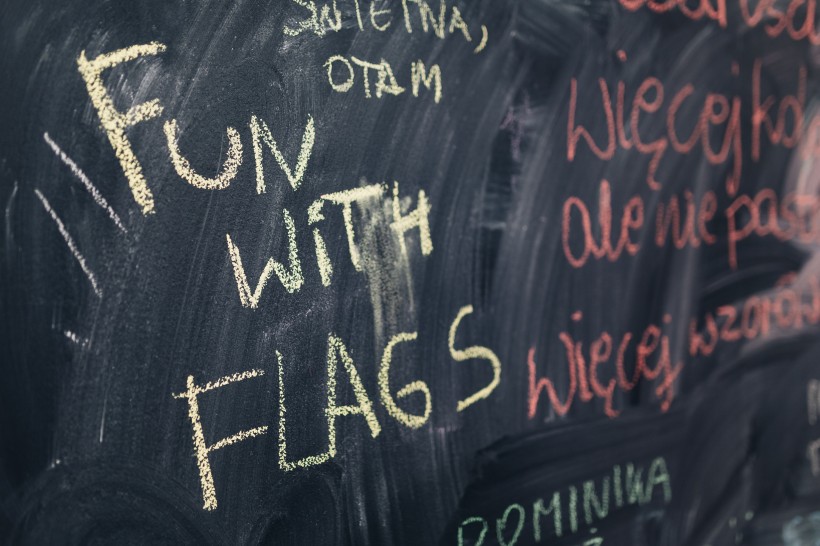 ŚWIETNA,
OTAM
FUN
WiTH
FLAGS
Więcej
ale nie
Więcej wzorów
DOMINIKA